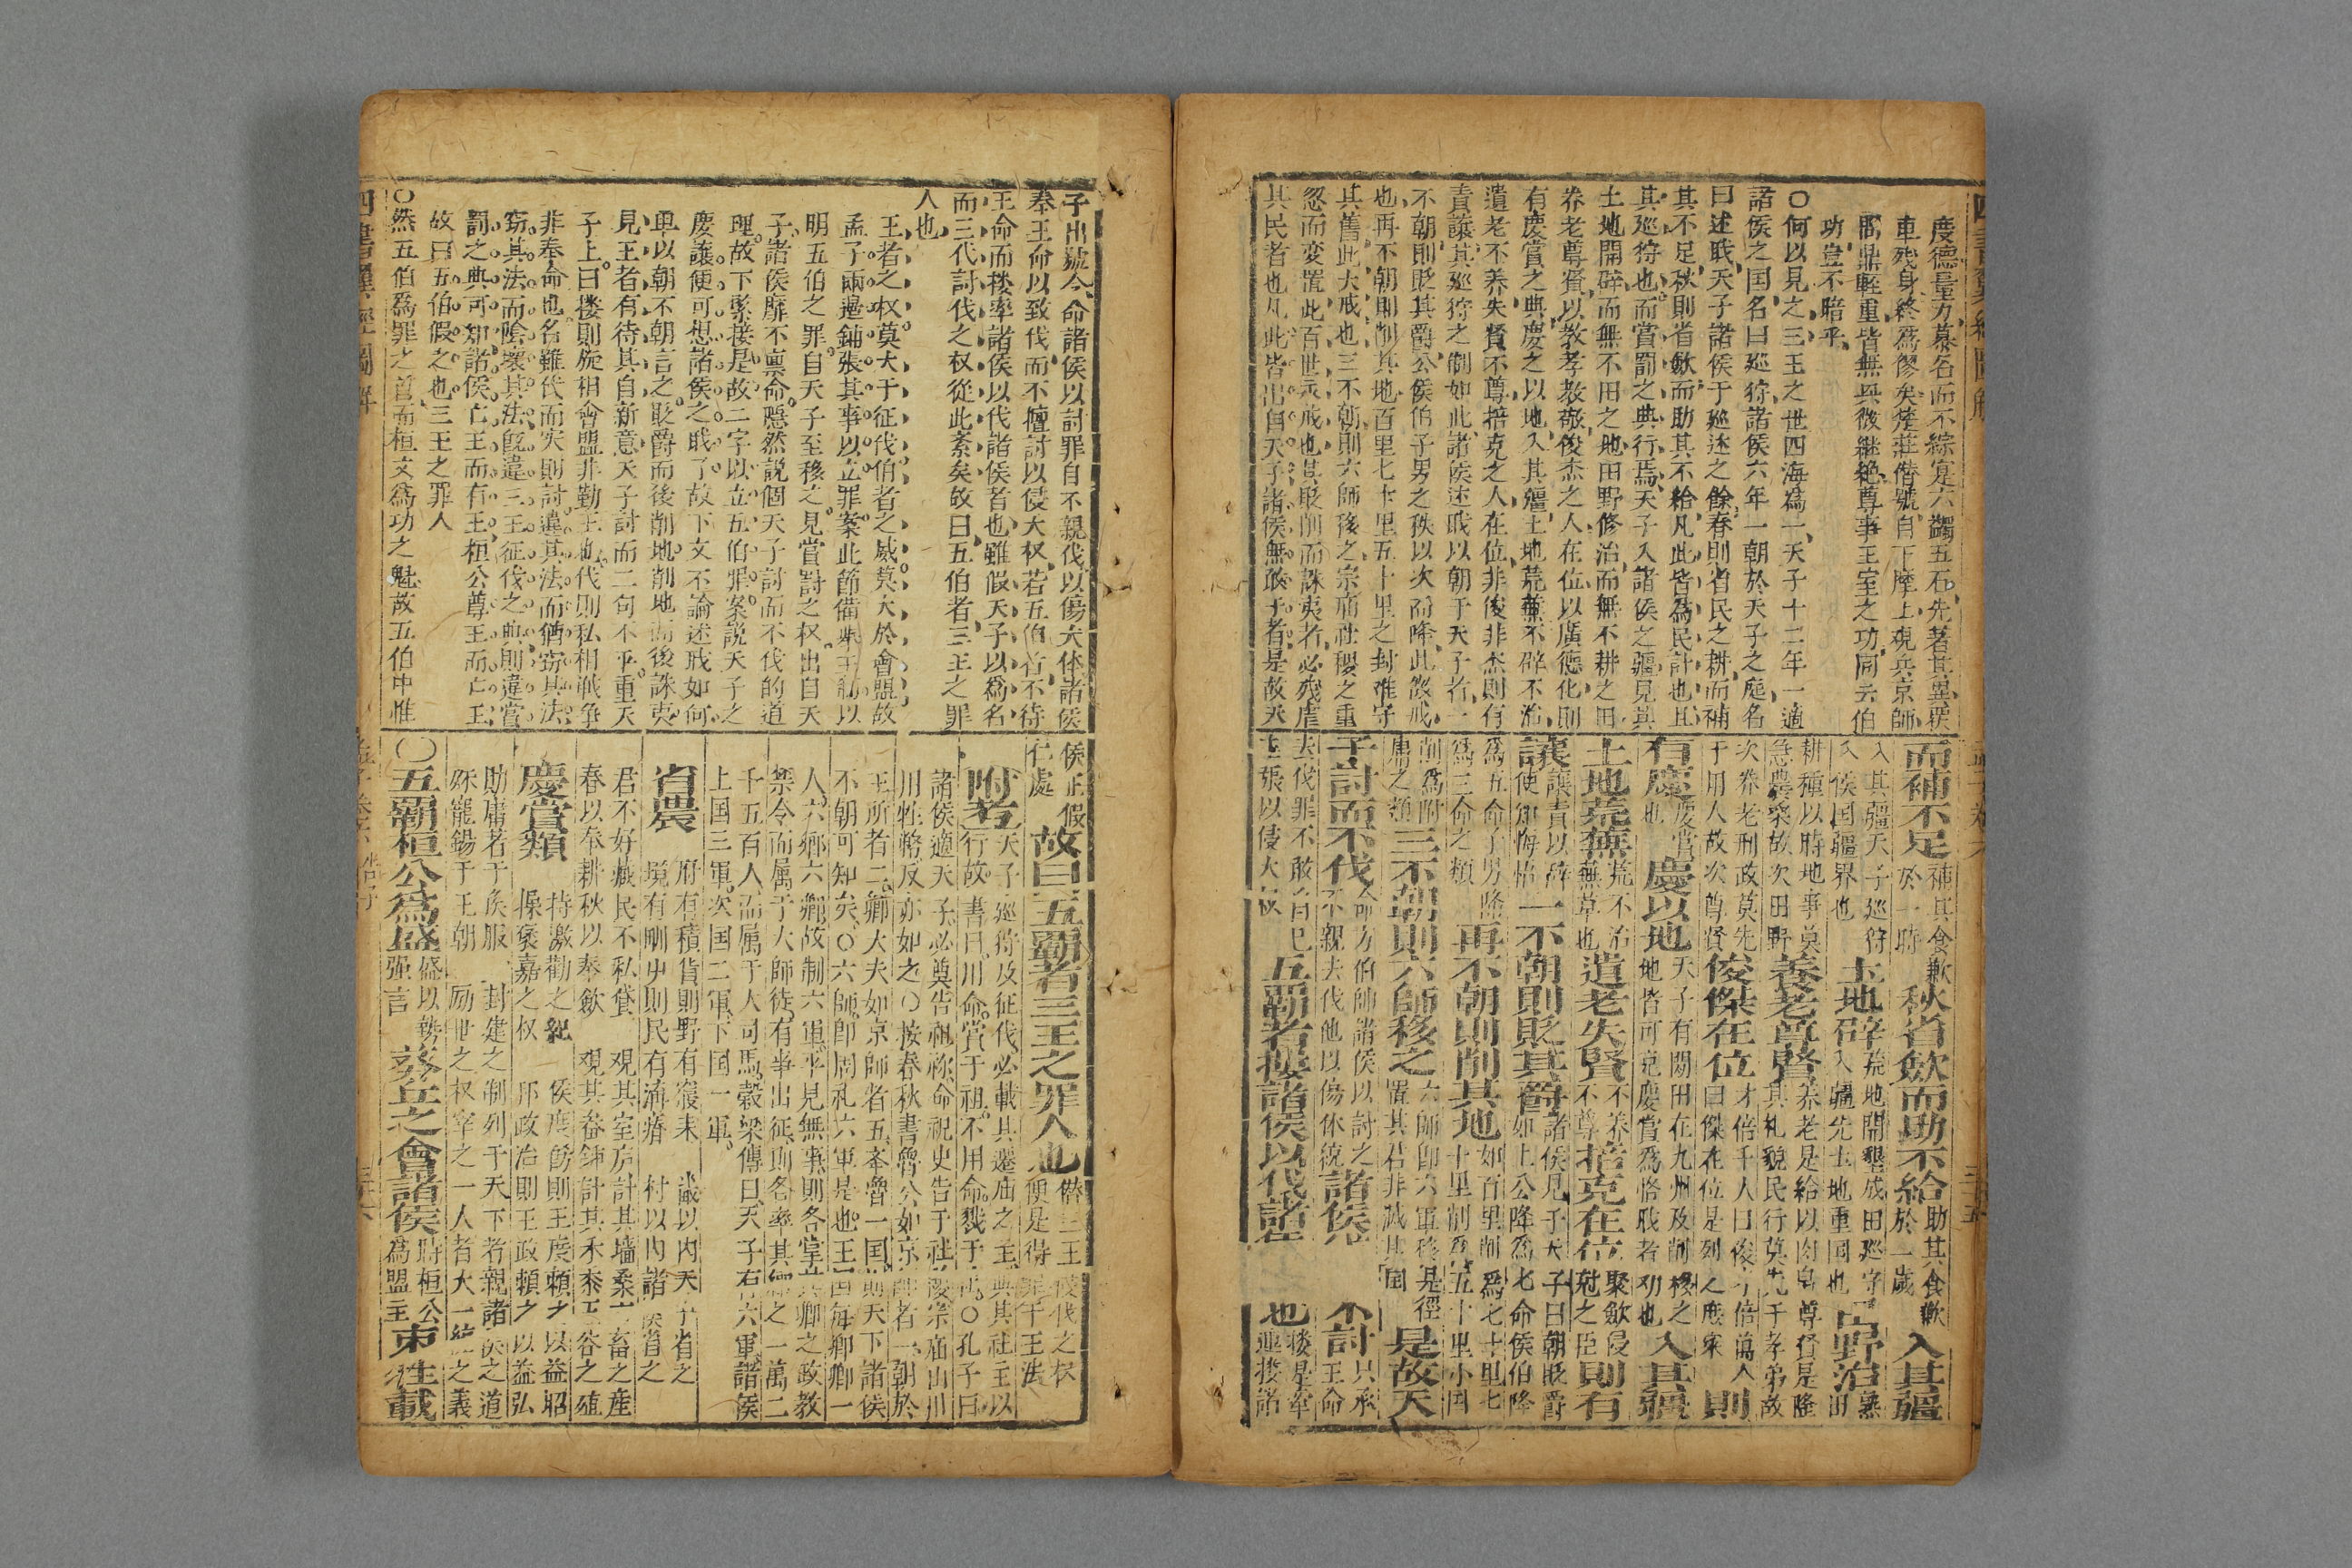 度德量力慕名而不綜寔六鷁五石先著其異
車殘身終爲僇矣楚莊僭號自下摩上観兵京師
問鼎軽重皆無與後継絶尊事王室之功同云伯
功豈不暗乎
〇何以見之三王之世四海為一天子十二年一適
諸侯之国名曰廵狩諸侯六年一朝於天子之庭名
曰述職天子諸侯于廵述之餘春則省民之耕而補
其不足秋則省歛而助其不給凡此皆為民計也且
其廵狩也而賞罰之典行焉天子入諸侯之疆見其
土地開辟而無不田之地田野修治而無不耕之田
养老尊賢以教孝教敬俊杰之人在位以廣德化則
有慶賞之典慶之以地入其疆土地荒蕪不辟不治
遺老不养失賢不尊掊克之人在位非俊非杰則有
責讓其廵狩之制如此諸侯述職以朝于天子者一
不朝則貶其爵公侯伯子男之秩以次而降此微戒
也再不朝則削其地百里七十里五十里之封难守
其舊此大戒也三不朝則六師移之宗庙社稷之重
忽而変置此百世之戒也其貶削而誅夷者必残虐
其民者也凡此皆出自天子諸侯無敢干者是故天
而補不足補其食歉於一時秋省歛而助不給助其食歉於一歲入其疆
入其疆天子廵狩入侯国疆界也土地辟荒地開墾成田廵守入疆先土地重国也田野治熟田
耕種以時地事莫急農桑故次田野養老尊賢养老是給以肉帛尊賢是隆其礼貌民行莫先于孝弟故
次养老刑政莫先于用人故次尊賢俊傑在位才倍千人曰俊才倍萬人曰傑在位是列之庶寀則
有慶慶賞也慶以地天子有閒田在九州及削地皆可克慶賞爲恪職者功也入其疆
土地荒蕪荒不治蕪草也遺老失賢不养不尊掊克在位聚歛侵尅之臣則有
讓讓責以辞使知悔悟一不朝則貶其爵諸侯見于天子曰朝貶爵如上公降為七命侯伯降
爲五命子男降爲三命之類再不朝則削其地如百里削爲七十里七十里削爲五十里小国
削爲附庸之類三不朝則六師移之六師即六軍移是徑置其君非滅其国是故天
子討而不伐命方伯帥諸侯以討之不親去伐他以傷体統諸侯伐而不討只承王命
去伐罪不敢自己主張以侵大权五霸者摟諸侯以伐諸侯者也摟是牽連摟諸
子出號令命諸侯以討罪自不親伐以傷大体諸侯
奉王命以致伐而不擅討以侵大权若五伯者不待
王命而摟率諸侯以伐諸侯者也雖假天子以爲名
而三代討伐之权從此紊矣故曰五伯者三王之罪
人也
王者之权莫大于征伐伯者之威莫大於會盟故
孟子兩邉鋪張其事以立罪案此節備興王制以
明五伯之罪自天子至移之見當罸之权出自天
子諸侯靡不禀命隱然説個天子討而不伐的道
理故下緊接是故二字以立五伯罪案説天子之
慶讓便可想諸侯之職了故下文不論述戒如何
単以朝不朝言之貶爵而後削地削地而後誅夷
見王者有待其自新意天子討而二句不平重天
子上曰摟則旋相會盟非勤王也伐則私相戦争
非奉命也名雖伐而实則討遺其法而猶窃其法
窃其法而陰壞其法旣違三王征伐之典則違當
罰之典可知諸侯亡王而有王桓公尊王而亡王
故曰五伯假之也三王之罪人
〇然五伯爲罪之首而桓文爲功之魁故五伯中惟
侯正假仁處故曰五霸者三王之罪人也僭三王便是得罪于王法
附考天子廵狩及征伐必載其遷庙之主行故書曰用命賞于祖不用命戮于社〇孔子曰
諸侯適天子必奠告祖祢命祝史告于社稷宗庙山川
用牲幣反亦如之〇按春秋書魯公如京師者一朝於
王所者二卿大夫如京師者五夲魯一国則天下諸侯
不朝可知矣〇六師即周礼六軍是也王四海卿卿一
人六鄉六卿故制六軍平見無事則各掌其卿之政教
禁令而属于大師徒有事出征則各率其鄉之一萬二
千五百人而属于大司馬穀梁傳曰天子有六軍諸侯
上国三軍次国二軍下国一軍
省農府有積貨則野有寢耒境有剛史則民有溝瘠歲以内天子省之村以内諸侯省之
君不好藏民不私貸観其室庐計其墙桑六畜之産
春以奉耕秋以奉歛観其畚鍤計其禾黍五谷之殖
慶賞類持激勸之紀操褒嘉之权侯度飭則王度頼之以益昭邦政冶則王政頼之以益弘
助庸若于矦服封建之制列于天下者親諸侯之道
殊寵錫于王朝励世之权宰之一人者大一統之義
〇五霸桓公為盛盛以勢强言葵丘之會諸侯時桓公為盟主束牲載